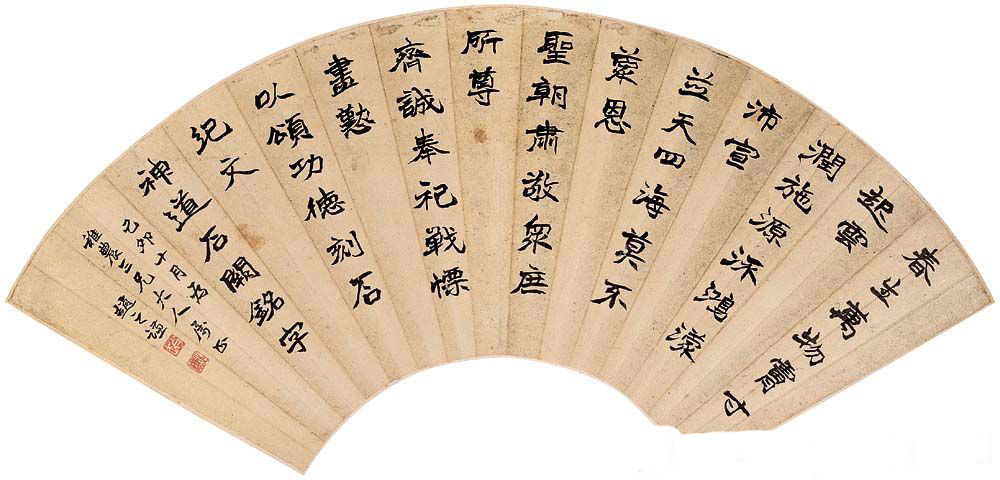 春生萬物膚寸
起雲
潤施源流鴻濛
沛宣
並天四海莫不
蒙恩
聖朝肅敬衆庶
所尊
齊誠奉祀戰慄
盡懃
以頌功德刻石
紀文
神道石闕銘字
己卯十月為
稚農三兄大人屬正
趙之謙